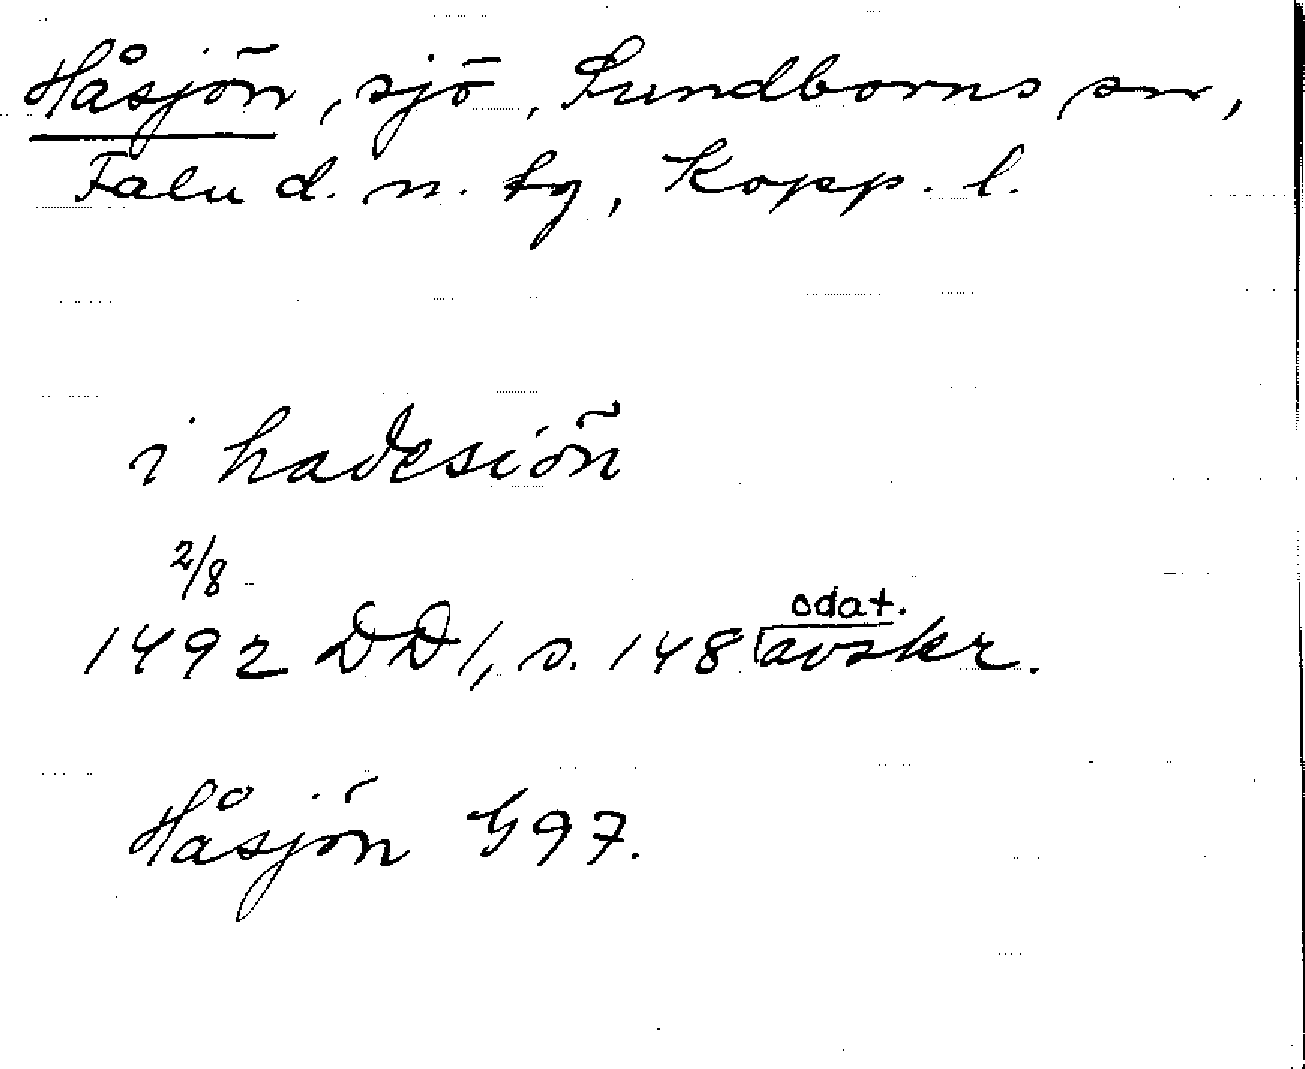 Håsjön, sjö, Sundborns sn,
Falu d. n. tg, Kopp. l.
i hadesiön
2/8
1492 DD 1, s. 148 odat. avskr.
Håsjön G97.